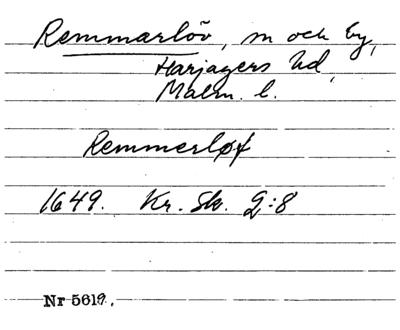 Remmarlöv, sn och by,
Harjagers hd,
Malm. l.
Remmerløf
1649. Kr. Sk. 2:8
Nr 5619.